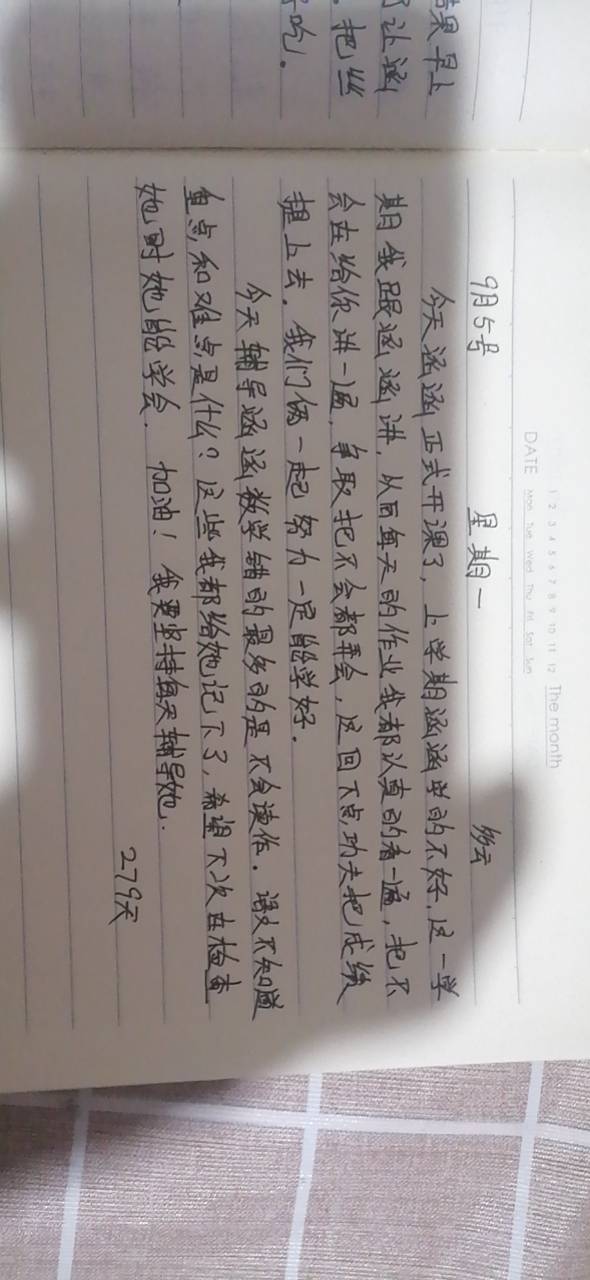 果早上
让涵
。把丝
吃。
1 2 3 4 5 6 7 8 9 10 11 12 The month
DATE Mon Tue Wed Thu Fri Sat Sun
9月5号 星期一 多云
今天涵涵正式开课了，上学期涵涵学的不好，这一学
期我跟涵涵讲，从而每天的作业我都认真的看一遍，把不
会在给你讲一遍，争取把不会都弄会，这回下点功夫把成绩
提上去。我们俩一起努力一定能学好。
今天辅导涵涵数学错的最多的是不会读作。语文不知道
重点和难点是什么？这些我都给她记下了，希望下次在检查
她时她能学会。加油！我要坚持每天辅导她.
279天